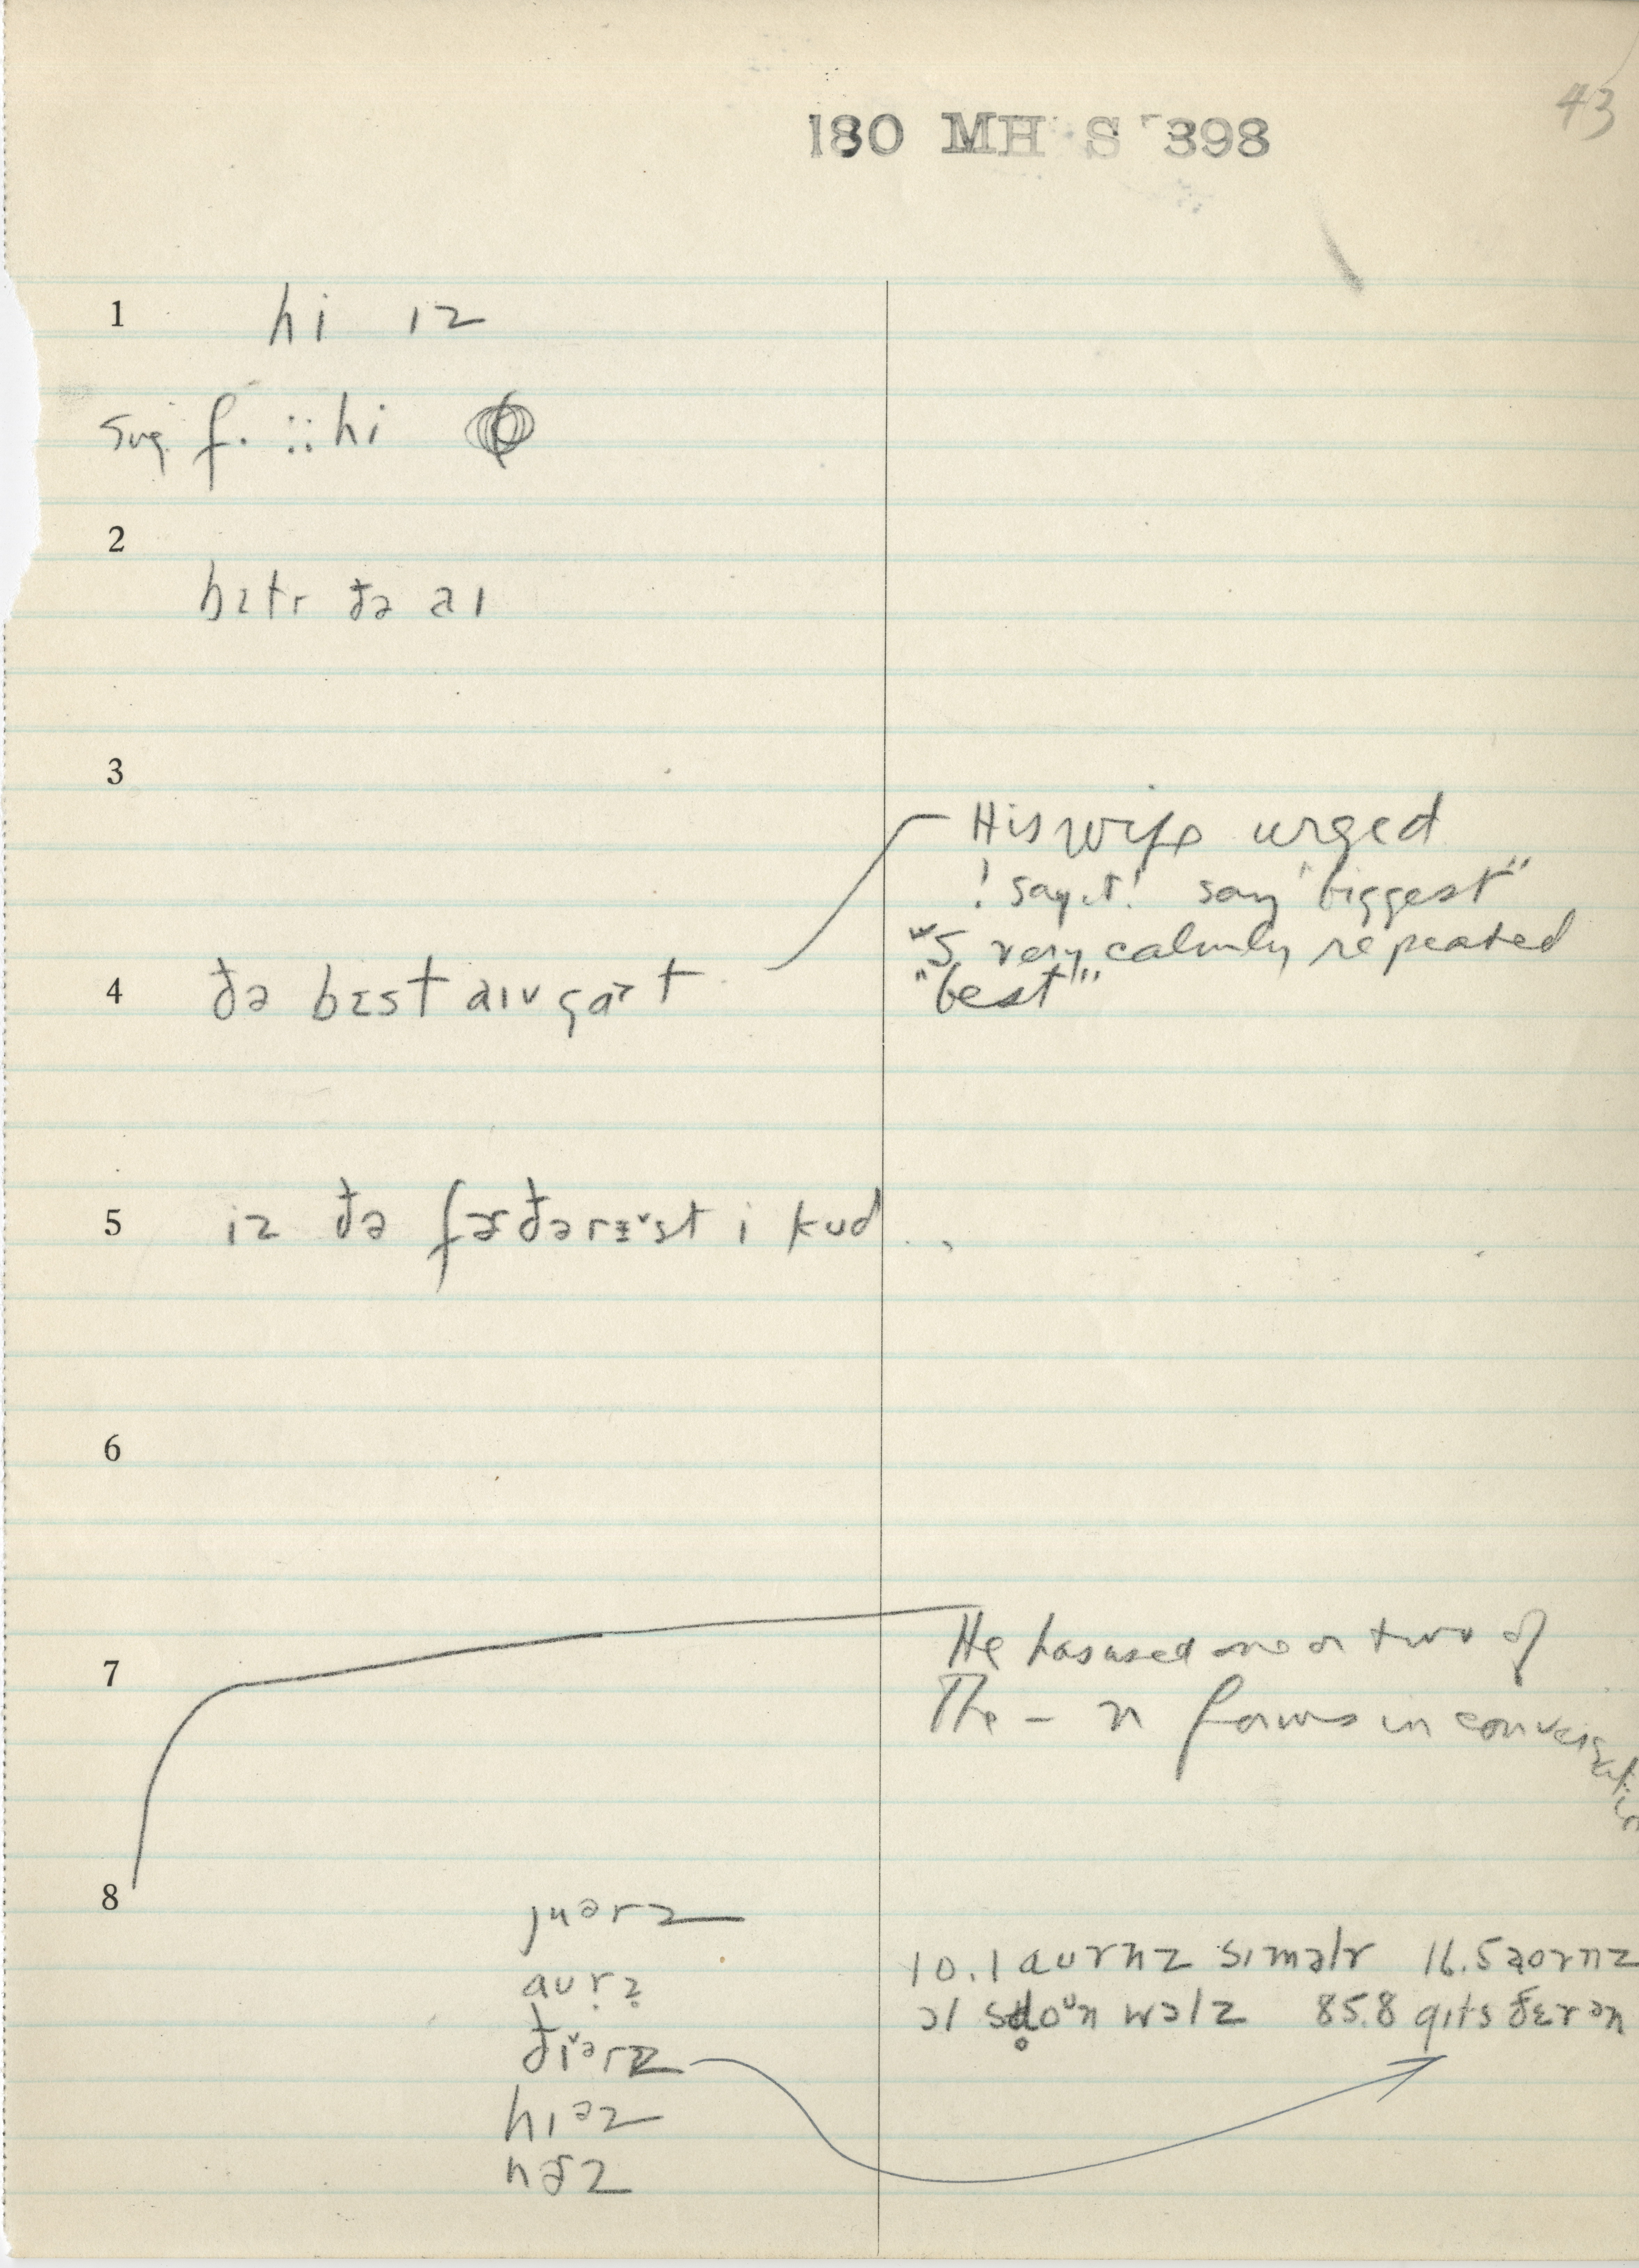 43
180 MH S 398
1 hi ɪz
sug. f. :: hi
2
bɛtr ðə aɪ
3
His wife urged
! say it! say "biggest"
"S very calmly repeated
"best""
4 ðə bɛst aɪv gɑɚt
5 iz ðə fɚðərɪ˅st i kud . .
6
7
He has used one or two of
The – n forms in conversation
8
juərz
aurz
ðɪ˅ərz
hɪəz
hɚz
10.1 aurnz sɪmələr 16.5 aornz
əl sdoᵘn wəlz 85.8 gɪts ðɛrən